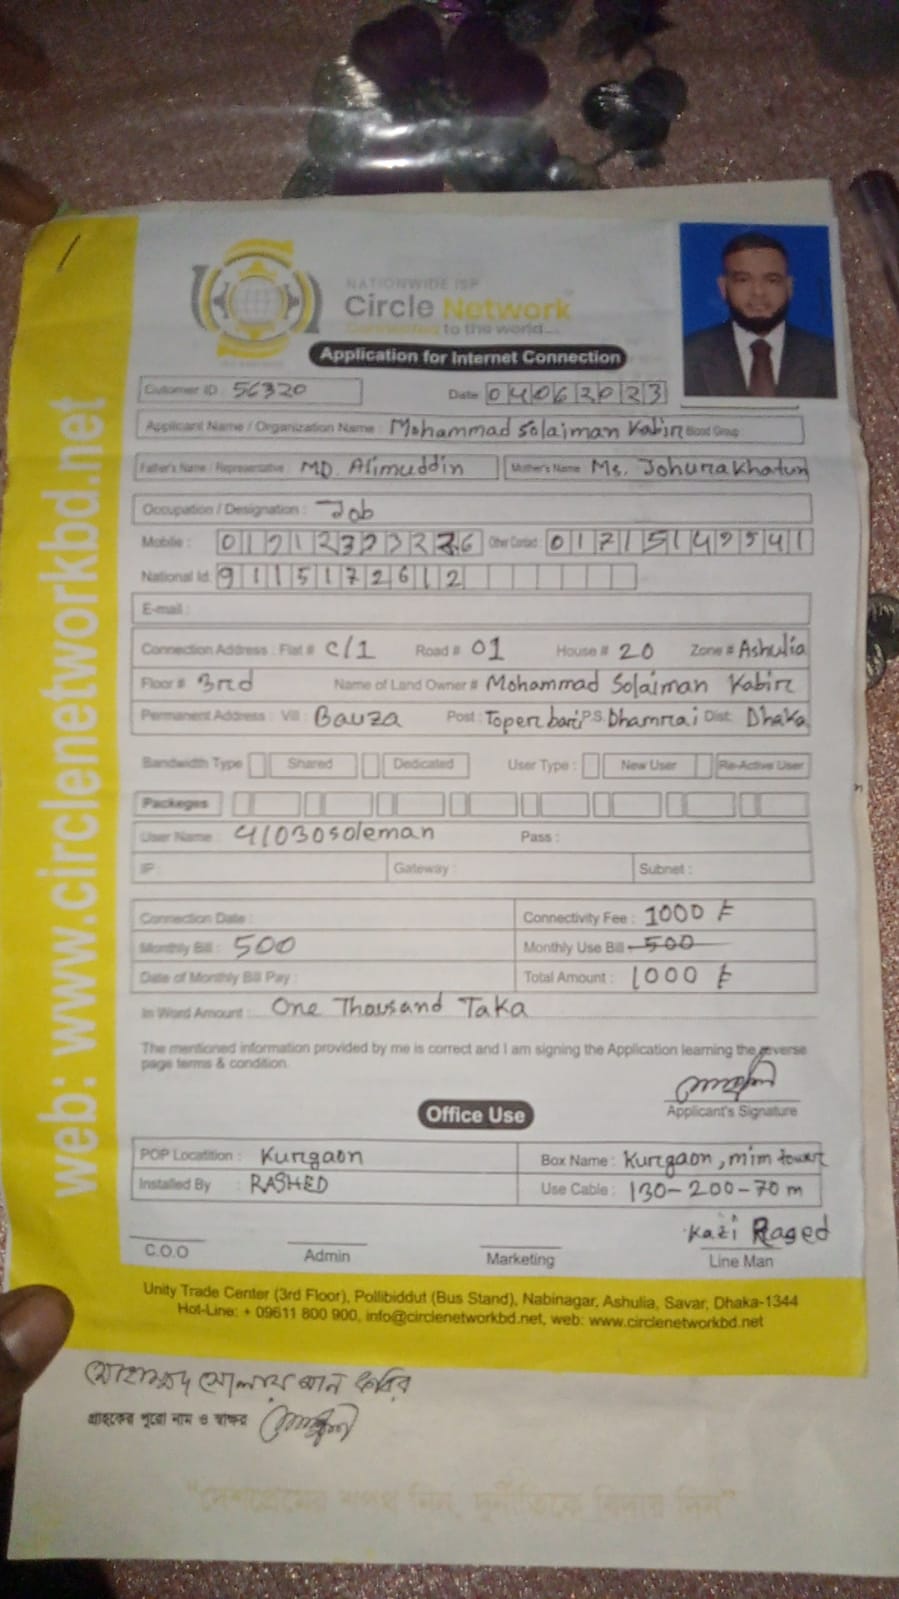 NATIONWIDE ISP
Circle Network
Connected to the world...
Application for Internet Connection
web: www.circlenetworkbd.net
Cutomer ID : 56320
Date 04062023
Applicant Name / Organization Name : Mohammad Solaiman Kabir Blood Group
Father's Name / Representative : MD. Alimuddin Mother's Name Ms. Johura Khatun
Occupation / Designation : Job
Mobile : Other Contact : 01715149541
National Id: 9115172612
E-mail :
Connection Address : Flat # C/1 Road # 01 House # 20 Zone # Ashulia
Floor # 3rd Name of Land Owner # Mohammad Solaiman Kabir
Permanent Address : Vill : Bauza Post : Toper bari P.S. Dhamrai Dist: Dhaka
Bandwidth Type Shared Dedicated User Type : New User Re-Active User
Packeges
User Name : 41030soleman Pass :
IP : Gateway : Subnet :
Connection Date : Connectivity Fee : 1000 ৳
Monthly Bill : 500 Monthly Use Bill 500
Date of Monthly Bill Pay : Total Amount : 1000 ৳
In Word Amount : One Thousand Taka
The mentioned information provided by me is correct and I am signing the Application learning the reverse
page terms & condition.
Applicant's Signature
Office Use
POP Locatition : Kurgaon Box Name : Kurgaon, mim tower
Installed By : RASHED Use Cable : 130-200-70 m
Kazi Raged
C.O.O Admin Marketing Line Man
Unity Trade Center (3rd Floor), Pollibiddut (Bus Stand), Nabinagar, Ashulia, Savar, Dhaka-1344
Hot-Line: + 09611 800 900, info@circlenetworkbd.net, web: www.circlenetworkbd.net
মোহাম্মদ সোলায়মান কবির
গ্রাহকের পুরো নাম ও স্বাক্ষর
"দেশপ্রেমের শপথ নিন, দুর্নীতিকে বিদায় দিন"